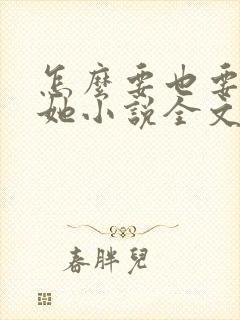 怎麼要也要
她小說全文
春胖兒